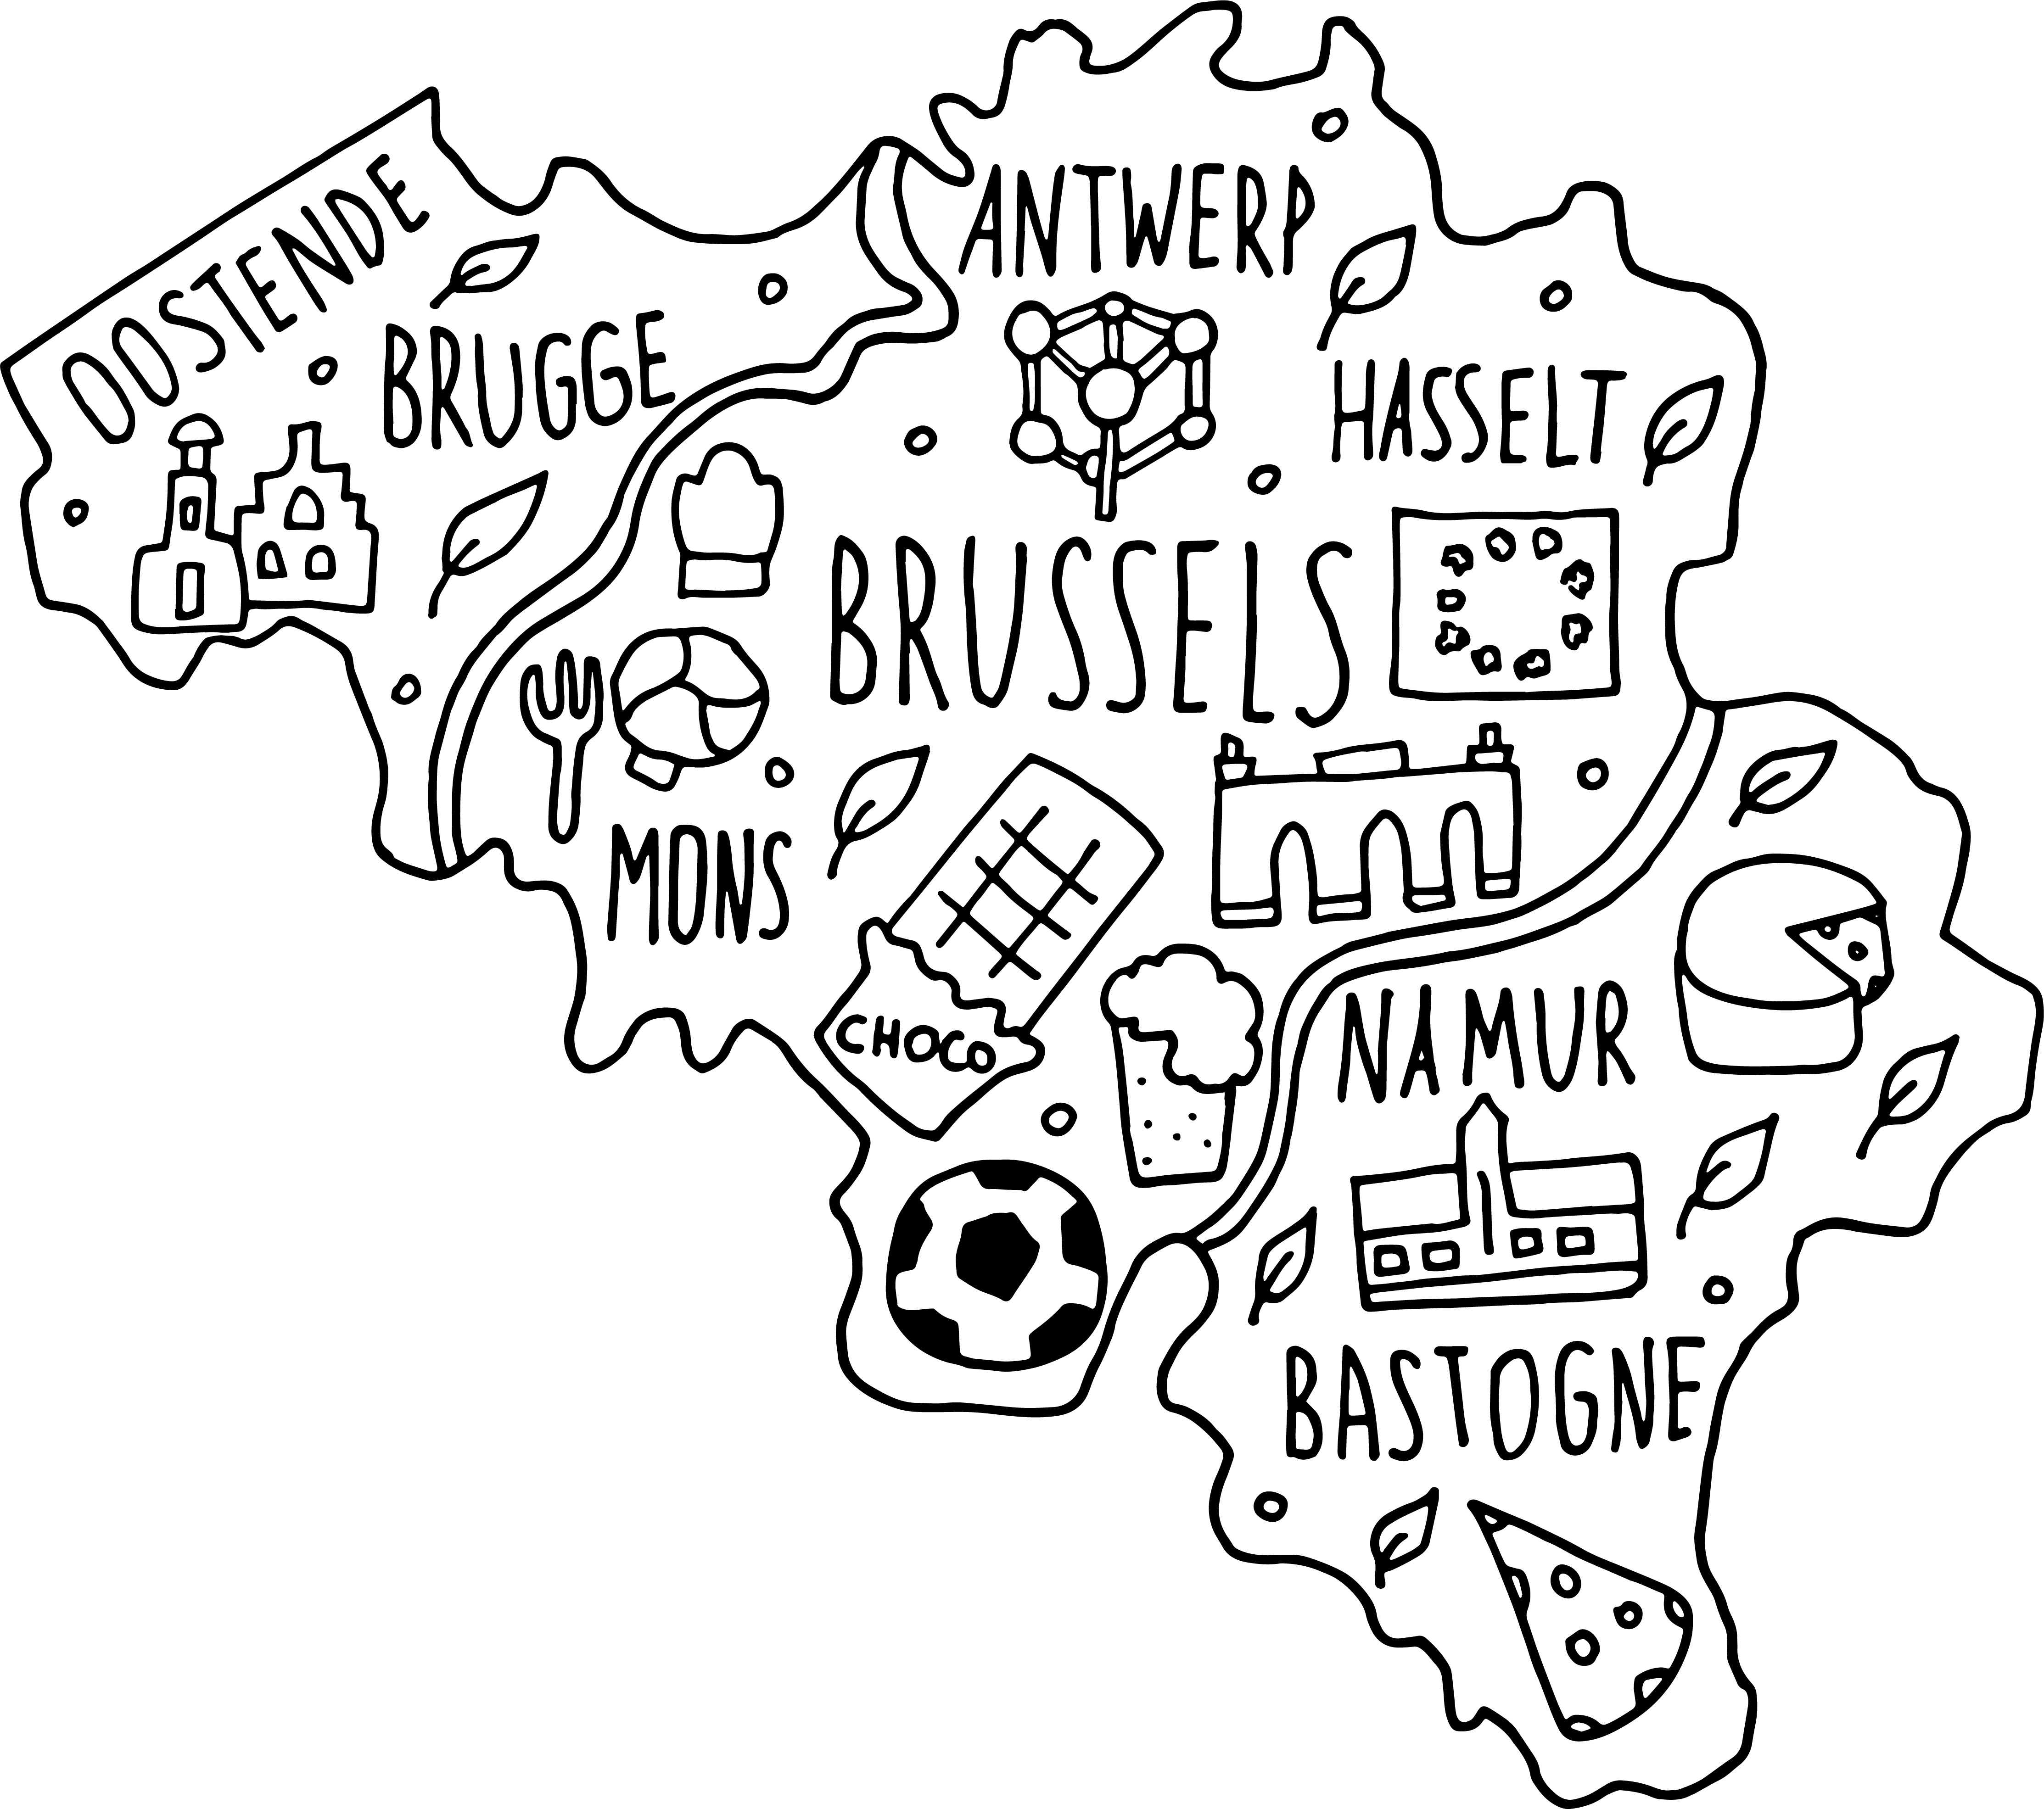 OOSTENDE
BRUGGE
ANTWERP
HASSELT
BRUSSELS
MONS
CHOCO
NAMUR
BASTOGNE